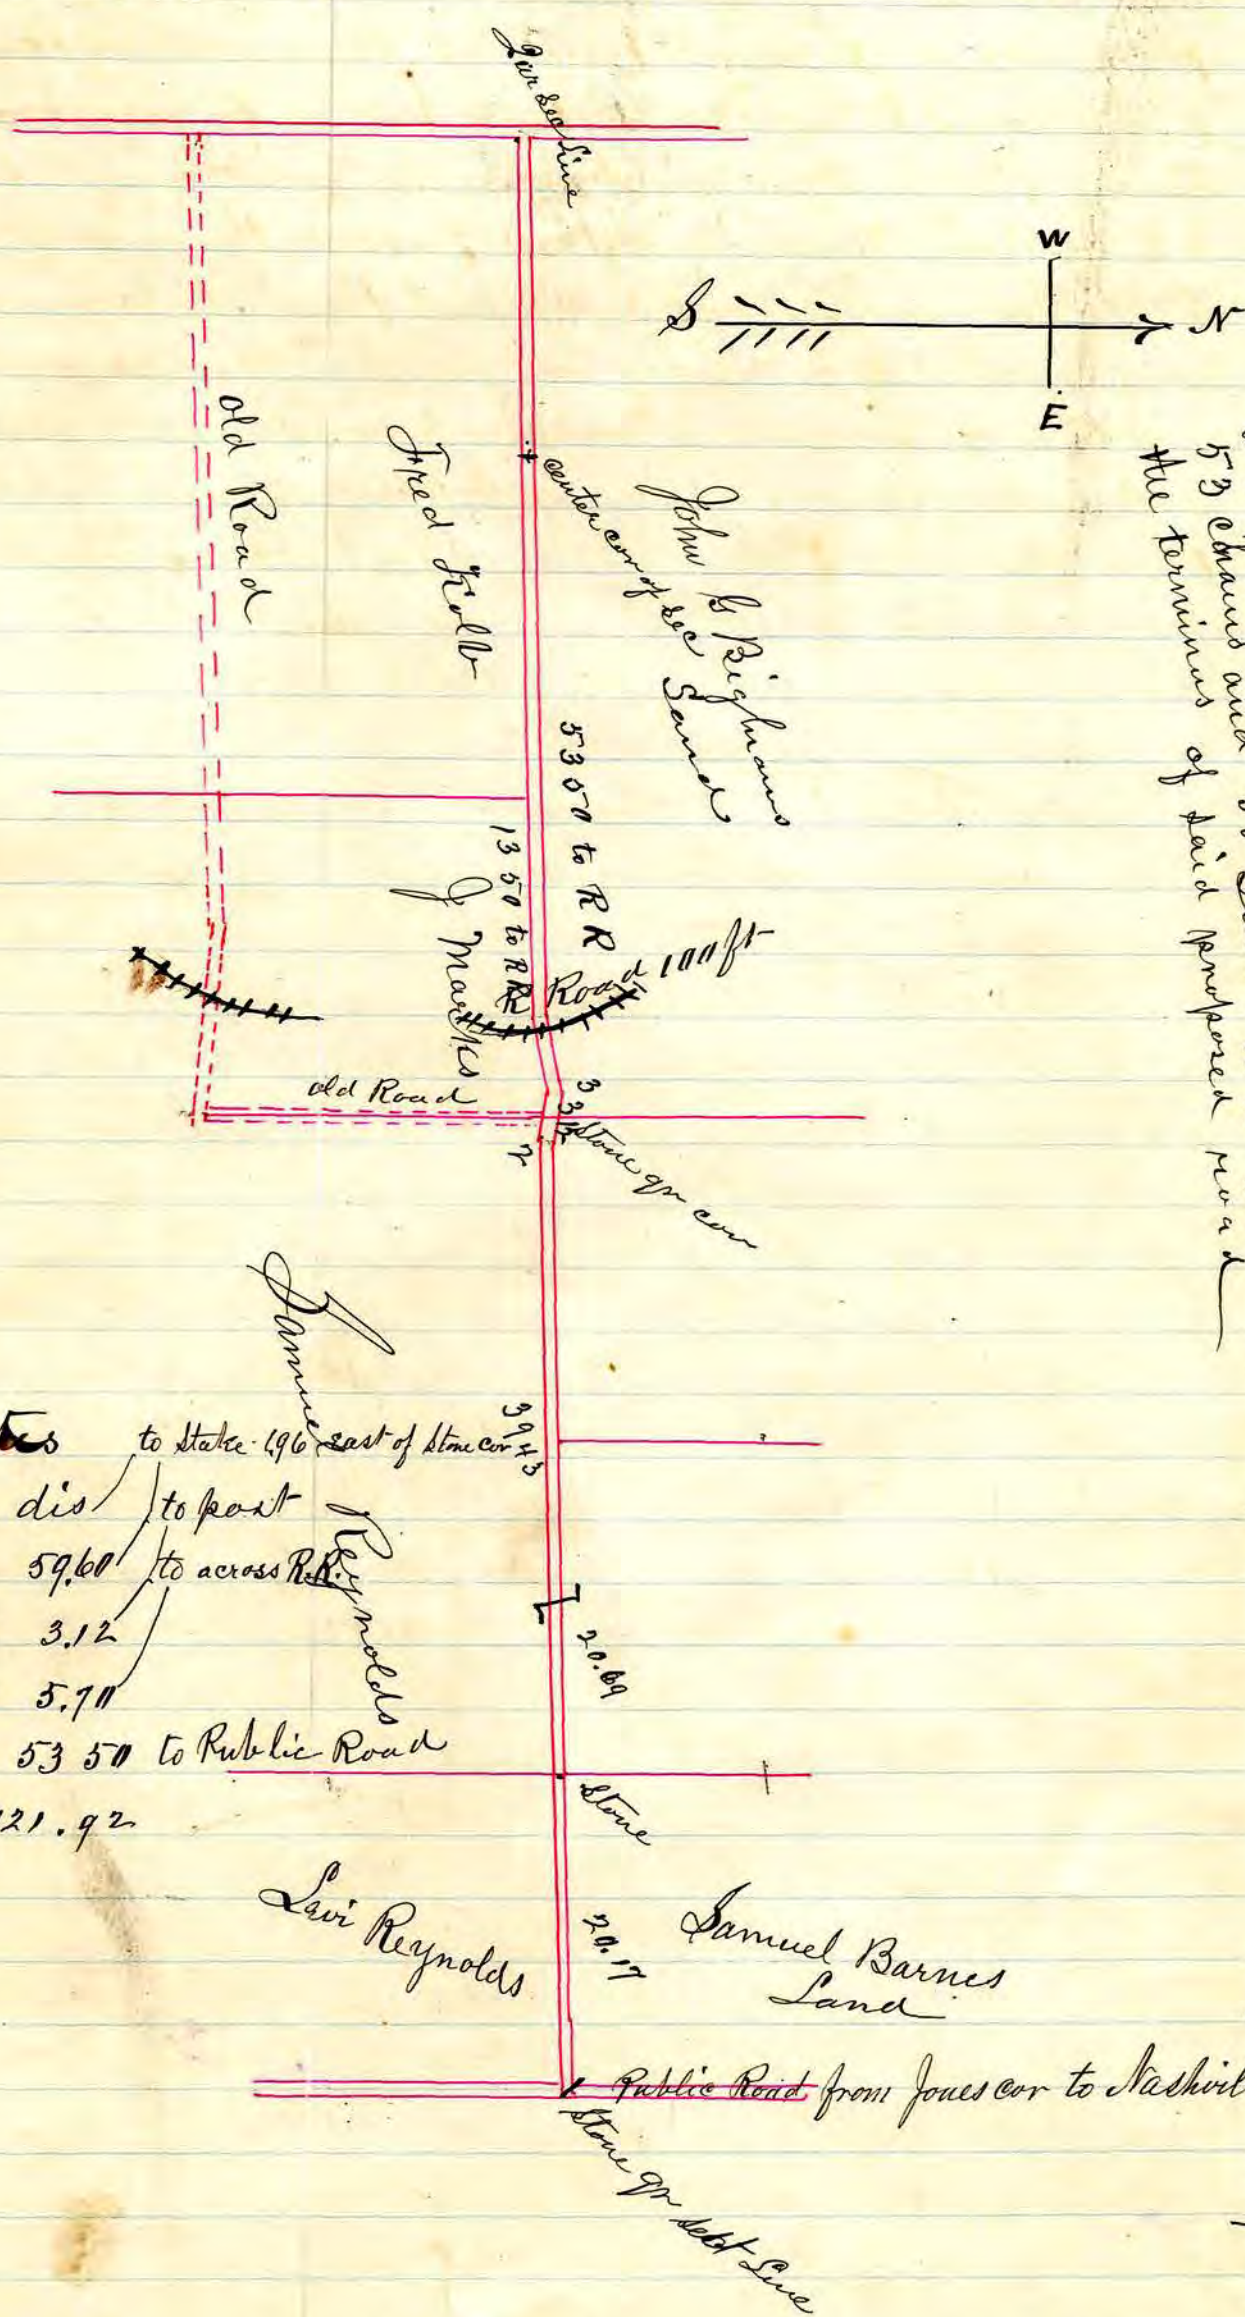 Qur Sec Line
W
S
N
E
53 chains and
the terminus of said proposed road
old Road
Fred Kolb
center cor of sec
John G Bighams
Land
53 50 to R R
13 50 to RR
J Marks
R Road 100 ft
old Road
3 12
Stone qr cor
2
39 43
Reynolds
to Stake 1,96 east of Stone cor
dis
to post
59.60
to across R.R.
3.12
5.70
53 50 to Public Road
21.92
20.69
Stone
Levi Reynolds
20.17
Samuel Barnes
Land
Public Road from Jones cor to Nashvil
Stone qr sect Line